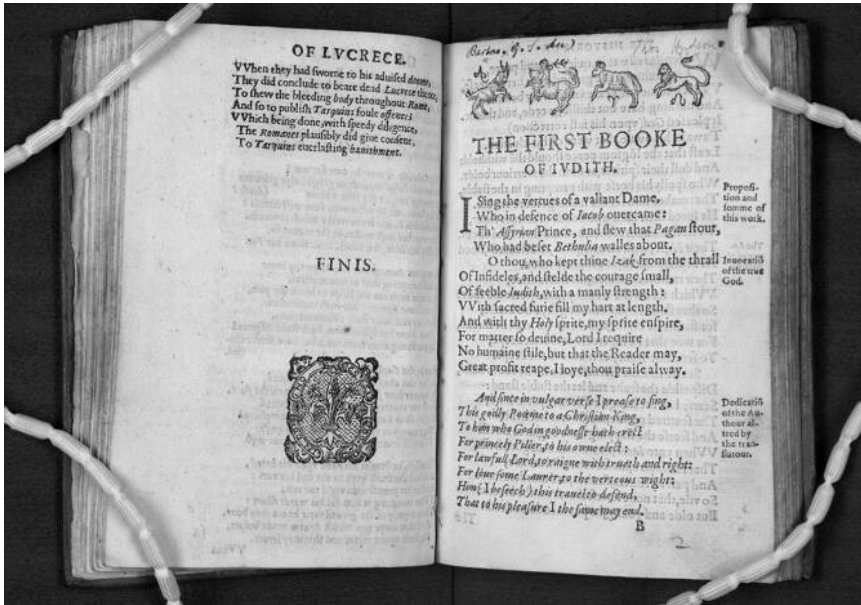 OF LVCRECE.
VVhen they had sworne to his aduised doome,
They did conclude to beare dead Lucrece thence,
To shew the bleeding body throughout Rome,
And so to publish Tarquins foule offence;
VVhich being done, with speedy diligence,
The Romanes plausibly did giue consent,
To Tarquins euerlasting banishment.
FINIS.
THE FIRST BOOKE
OF IVDITH.
I Sing the vertues of a valiant Dame,
Who in defence of Iacob ouercame:
Th' Assyrian Prince, and slew that Pagan stour,
Who had beset Bethulia walles about.
O thou, who kept thine Izak from the thrall
Of Infideles, and stelde the courage small,
Of feeble Iudith, with a manly strength:
VVith sacred furie fill my hart at length.
And with thy Holy sprite, my sprite enspire,
For matter so deuine, Lord I require
No humaine stile, but that the Reader may,
Great profit reape, I ioye, thou praise alway.
And since in vulgar verse I prease to sing,
This godly Poeme to a Christian King,
To him who God in goodnesse hath erect
For princely Piller, to his owne elect:
For lawfull Lord, to raigne with trueth and right:
For loue some Laurer, to the verteous wight:
Him (I beseech) this trauaile defend,
That to his pleasure I the same may end.
B
Proposi-
tion and
somme of
this work.
Inuocatiō
of the true
God.
Dedicatiō
of the Au-
thour al-
tred by
the tran-
slatour.